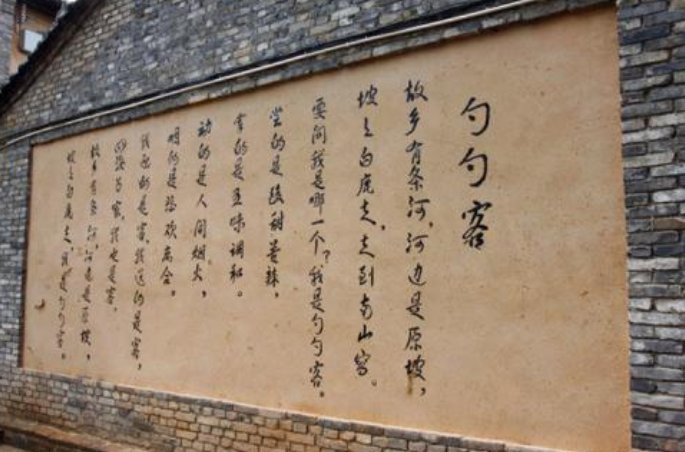 勺勺客
故乡有条河,河边是原坡,
坡上白鹿走,走到南山窝。
要问我是哪一个?我是勺勺客。
尝的是酸甜苦辣,
掌的是五味调和。
动的是人间烟火,
唱的是悲欢离合。
我迎的是客,我送的是客,
四海为家,我也是客。
故乡有条河,河边是原坡,
坡上白鹿走,我是勺勺客。